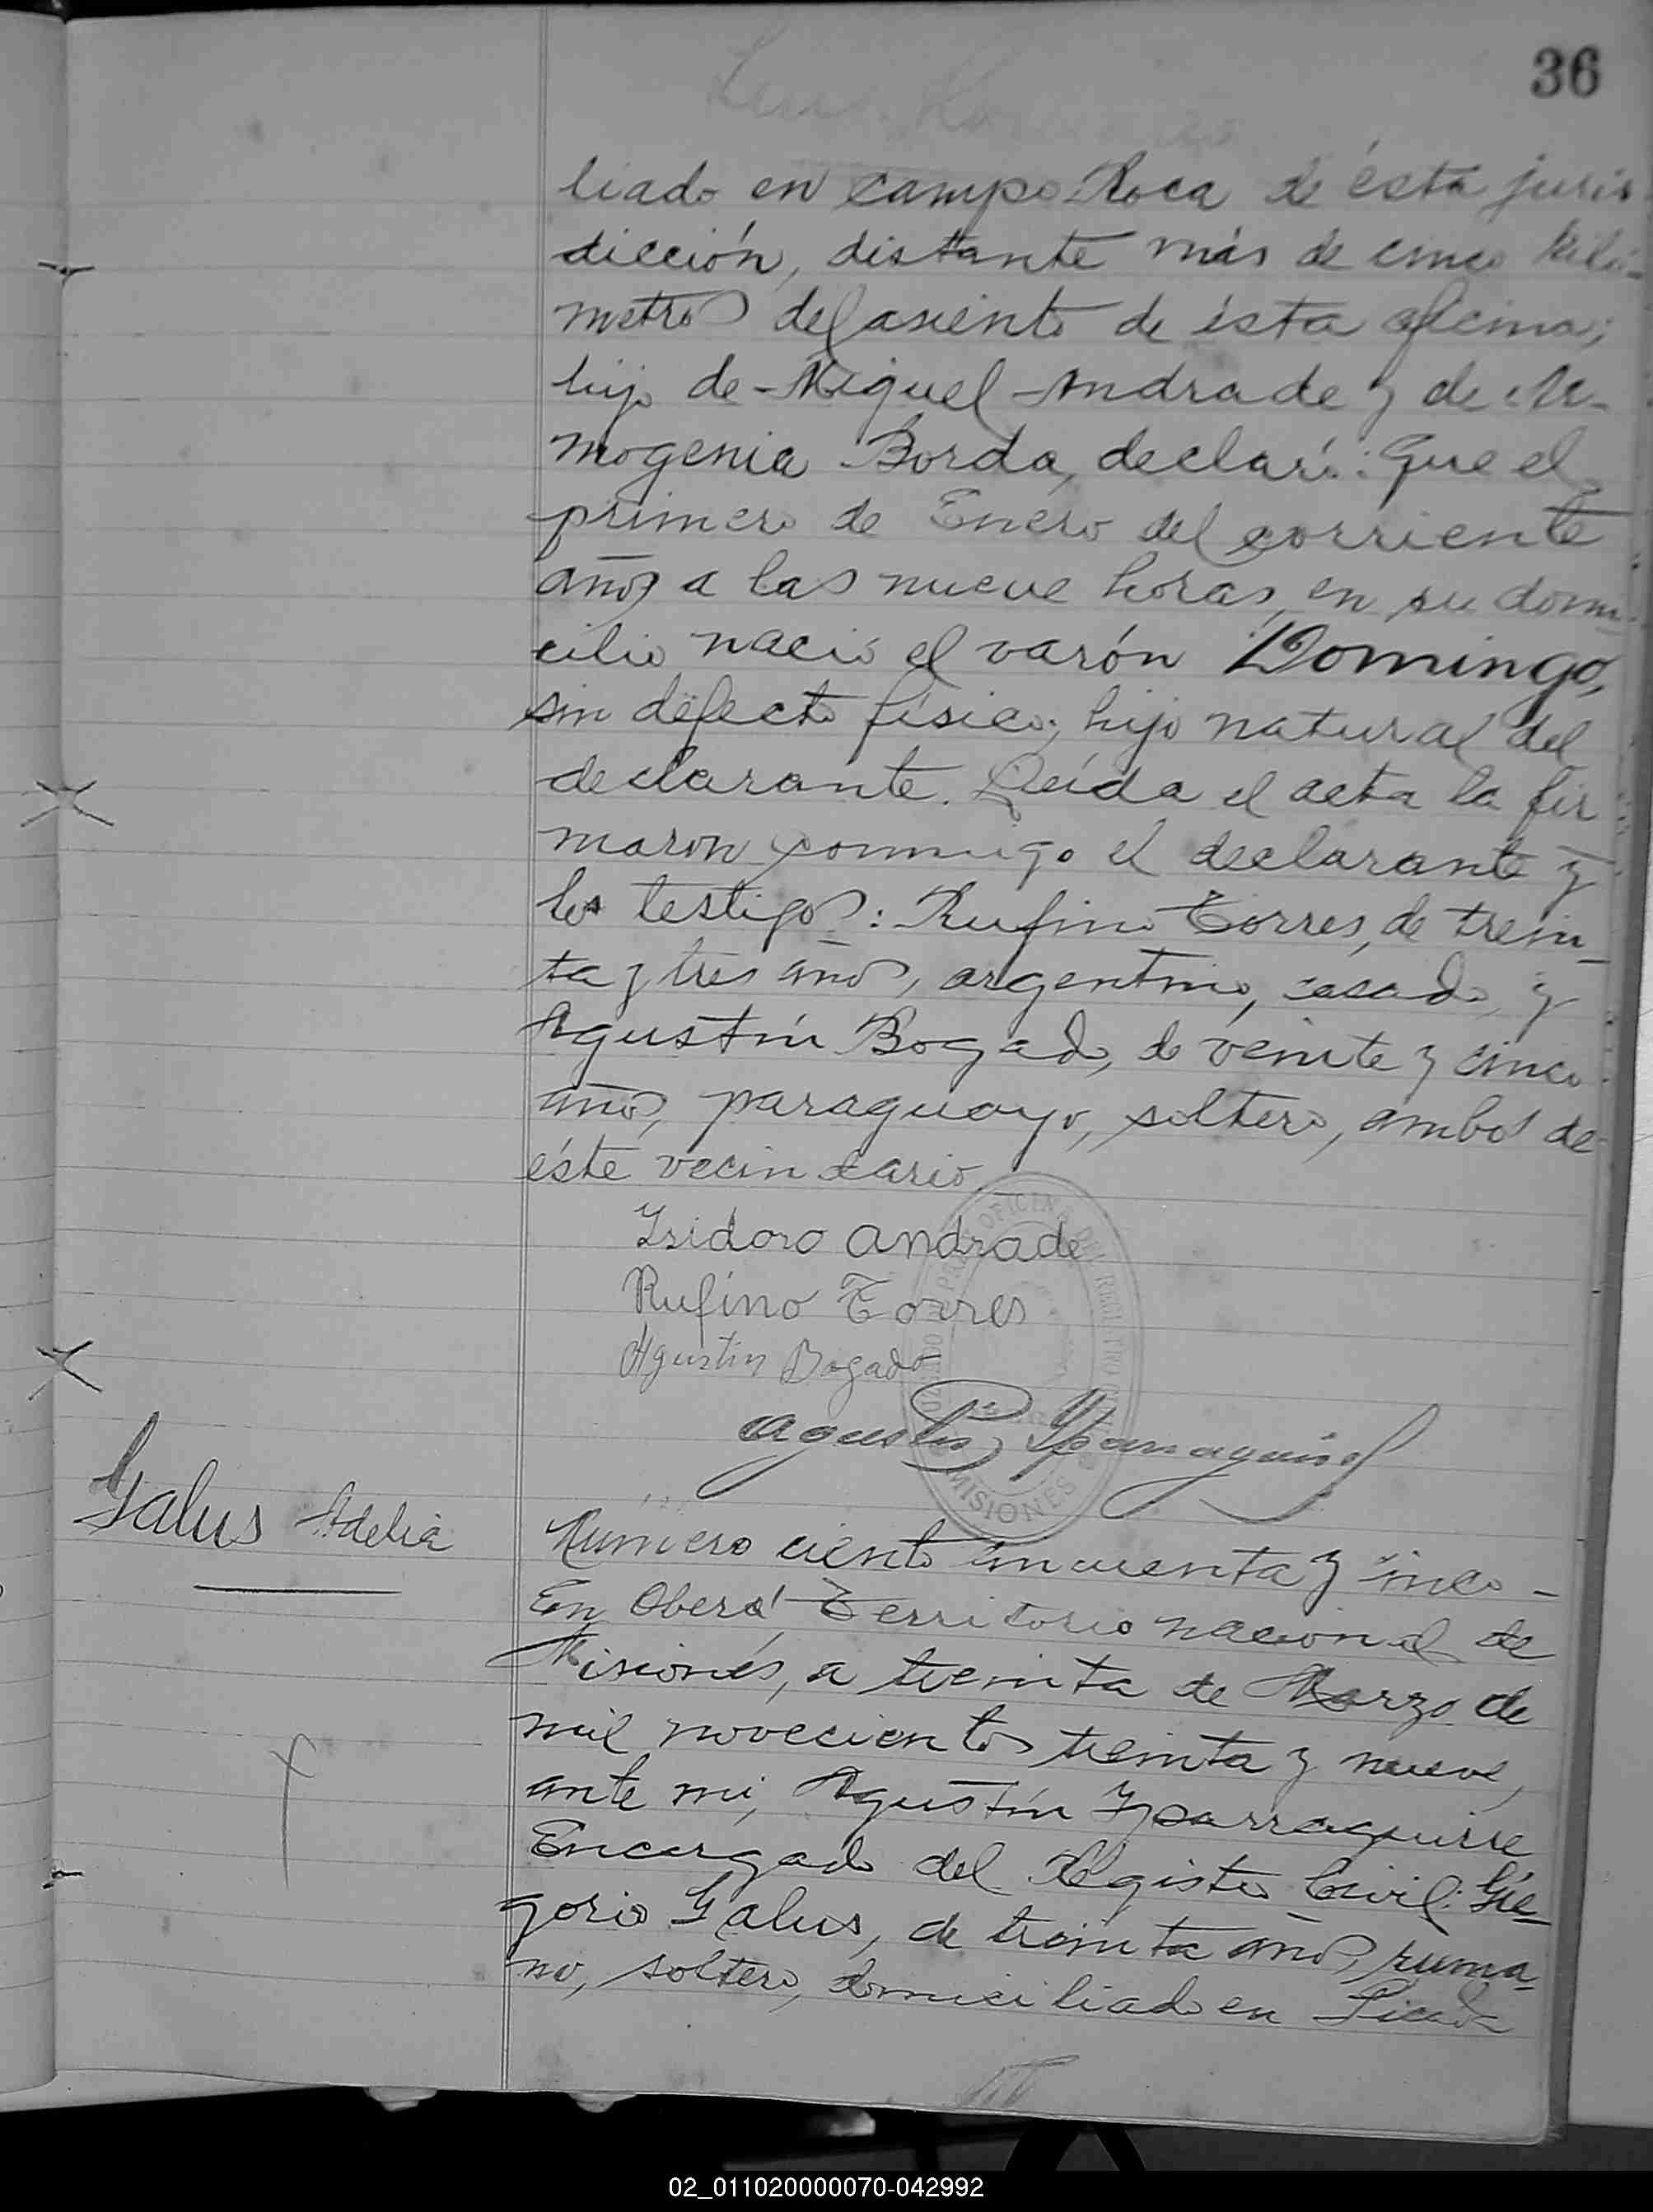 36
liado en Campo Roca de ésta juris
dicción, distante más de cinco kiló-
metros del asiento de ésta oficina;
hijo de Miguel Andrade y de
mogenia Borda, declaró: Que el
primero de Enero del corriente
año, a las nueve horas, en su domi-
cilio nació el varón Domingo,
sin defecto físico; hijo natural del
declarante. Leída el acta la fir
maron conmigo el declarante y
los testigos: Rufino Torres, de trein-
ta y tres años, argentino, casado, y
Agustín Bogado, de veinte y cinco
años, paraguayo, soltero, ambos de
éste vecindario.
Isidoro Andrade
Rufino Torres
Agustin Bogado
OFICINA DEL REGISTRO
MISIONES
Agustin Yparraguirre
Galus Adelia
Número ciento cincuenta y cinco -
En Oberá, Territorio nacional de
Misiones, a treinta de Marzo de
mil novecientos treinta y nueve,
ante mí, Agustín Yparraguirre
Encargado del Registro Civil: Gre-
gorio Galus, de treinta años, ruma-
no, soltero, domiciliado en Picada
02_011020000070-042992